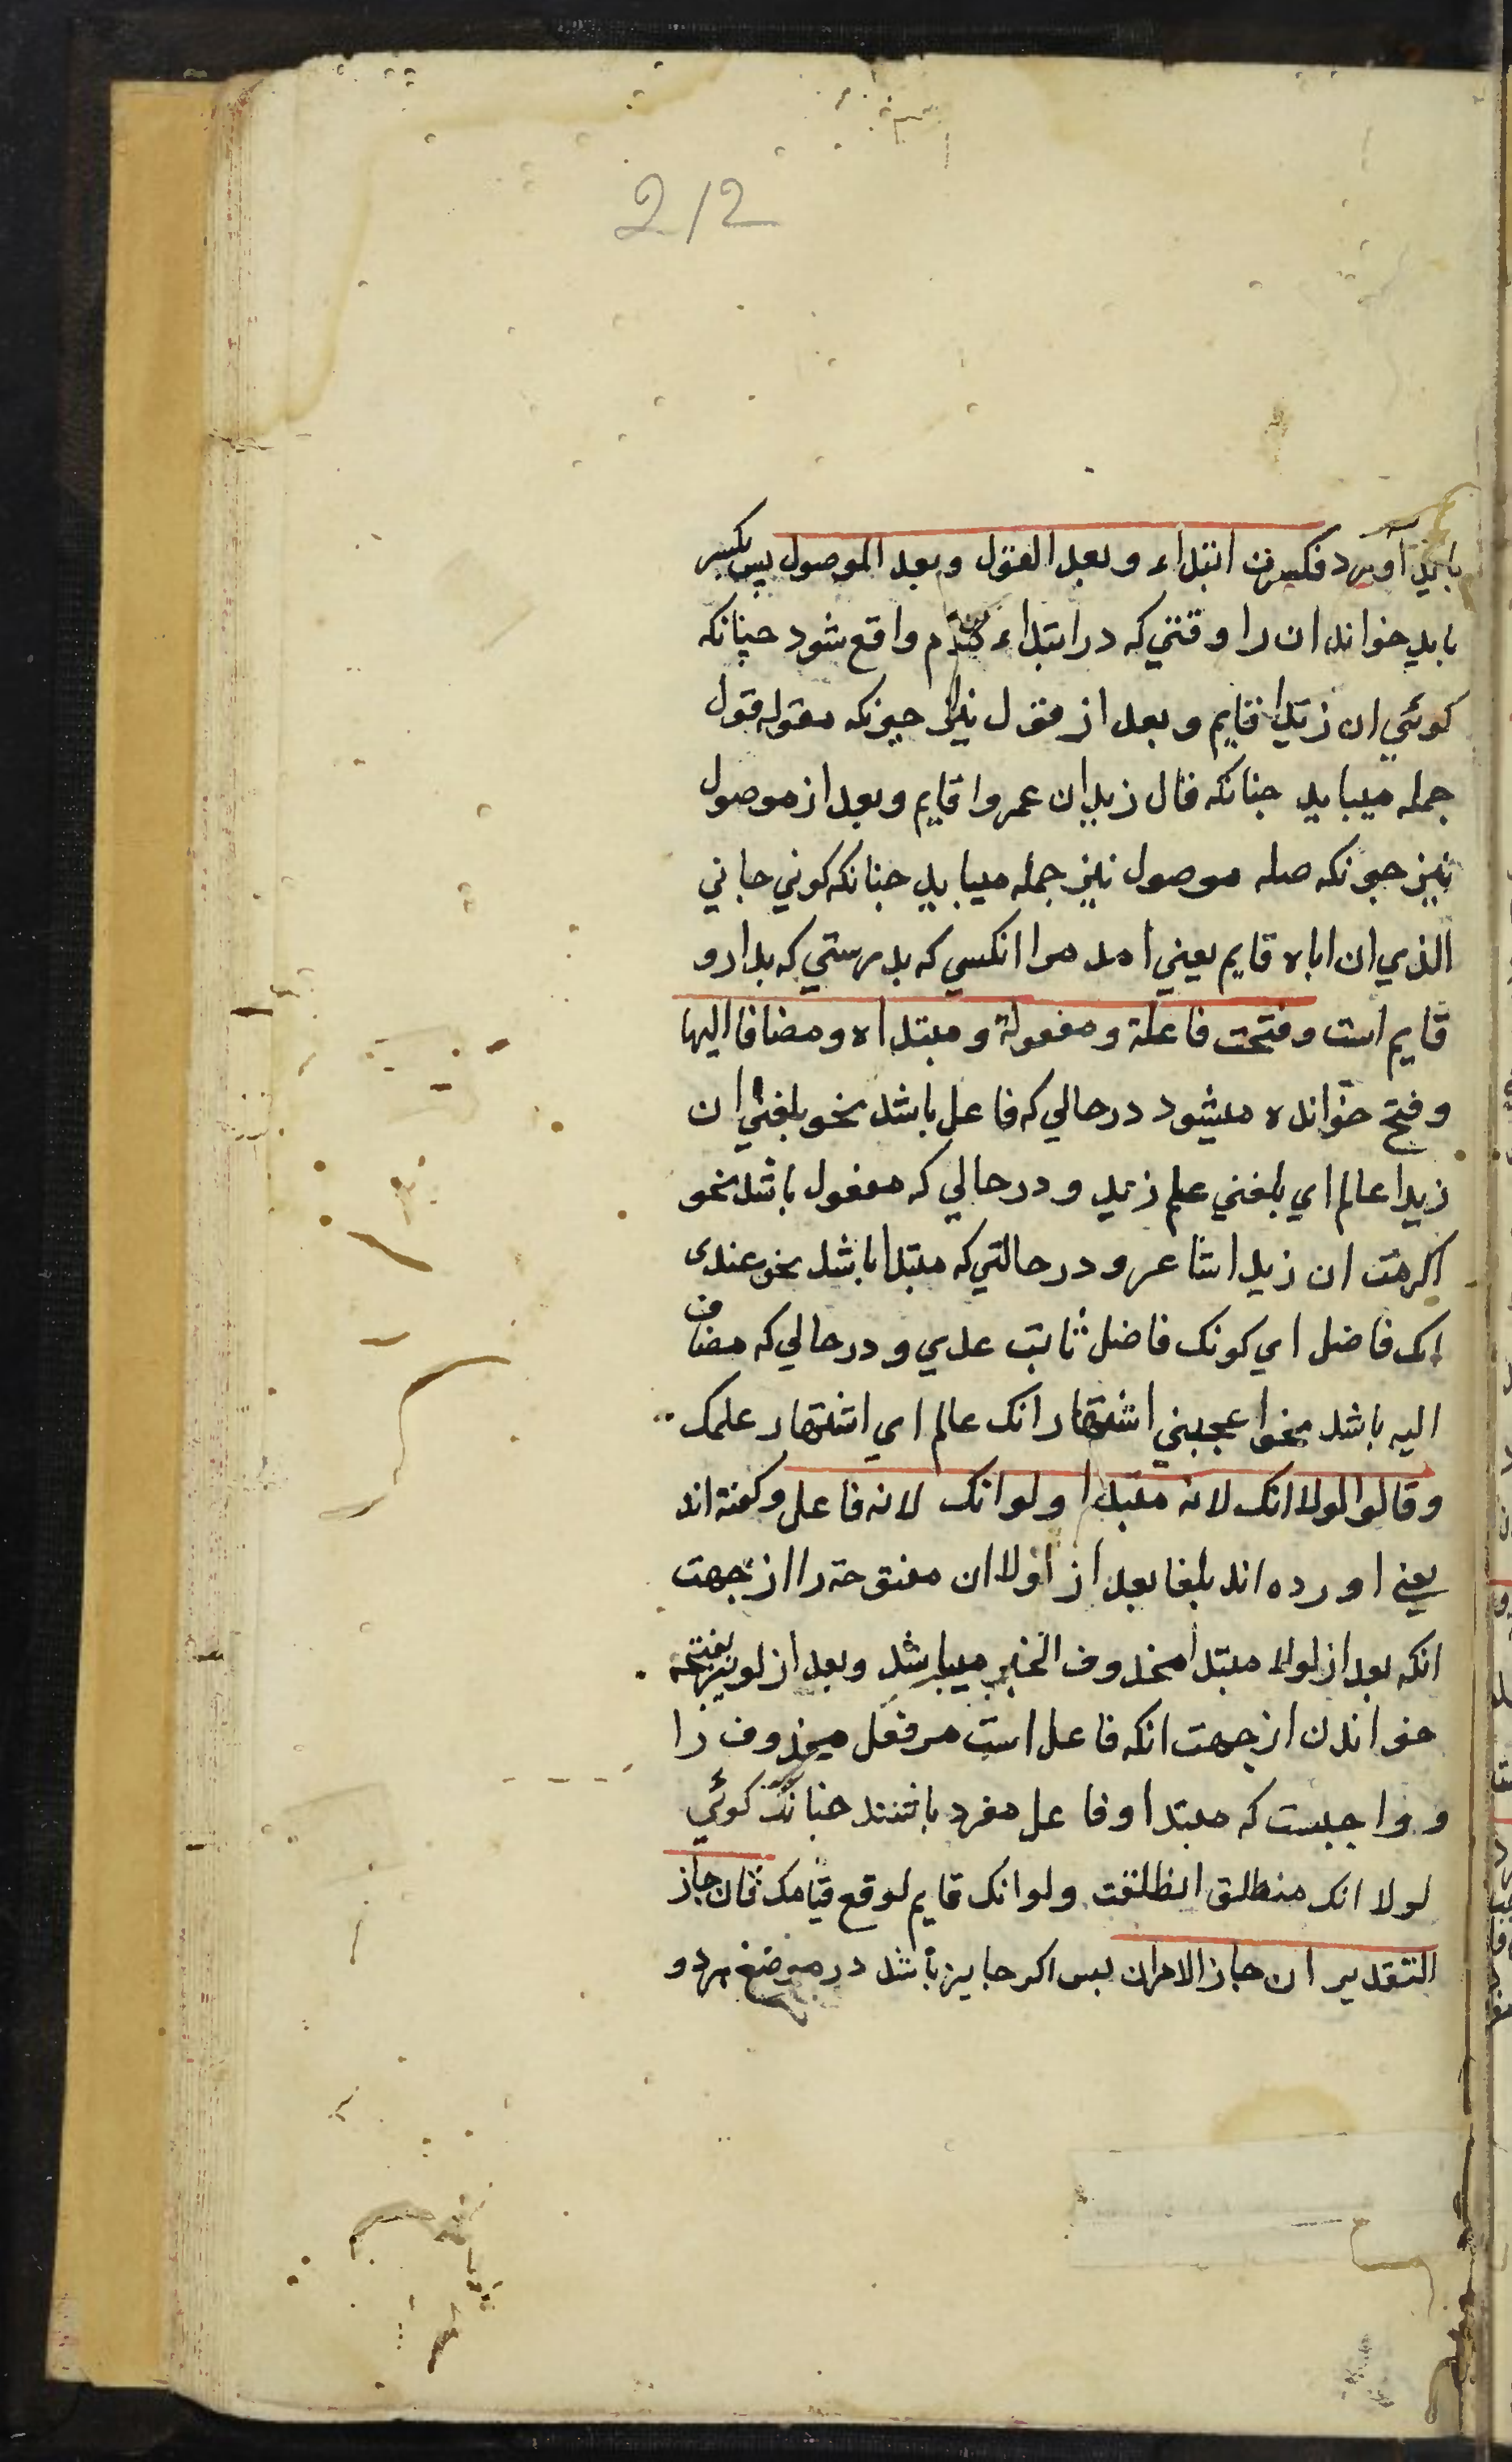 212
باید آورد فکسرت ابتداء وبعد القول وبعد الموصول پس بکسر
باید خواند ان را وقتی که در ابتداء کلام واقع شود چنانکه
کوئی ان زیدا قایم وبعد از قول نیز چونکه مقوله قول
جمله میباید چنانکه قال زید ان عمروا قایم وبعد از موصول
نیز چونکه صله موصول نیز جمله میباید چنانکه کوئی جاني
الذي ان اباه قایم یعني امد مرا انکسي که بدرستي که پدر او
قایم است وفتحت فاعلة ومفعولة ومبتداه ومضافا الیها
وفتح خوانده میشود در حالي که فاعل باشد نحو بلغني ان
زیدا عالم اي بلغني علم زید ودر حالي که مفعول باشد نحو
اکرهت ان زیدا شاعر ودر حالتي که مبتدا باشد نحو عندی
انک فاضل اي کونک فاضل ثابت عدي ودر حالي که مضاف
الیه باشد نحو اعجبني اشتهار انک عالم اي اشتهار علمک
وقالوا لولا انک لانه مبتدا ولو انک لانه فاعل وکفته اند
یعني اورده اند بلغا بعد از لولا ان مفتوحة را از جهت
انکه بعد از لولا مبتدا محذوف الخبر میباشد وبعد از لو نیز بفتحه
خواندن از جهت انکه فاعل است مر فعل محذوف را
وواجبست که مبتدا وفاعل مفرد باشند چنانکه کوئي
لولا انک منطلق انطلقت ولو انک قایم لوقع قیامک فان جاز
التقدیر ان جاز الامران پس اکر جایز باشد در موضع هردو